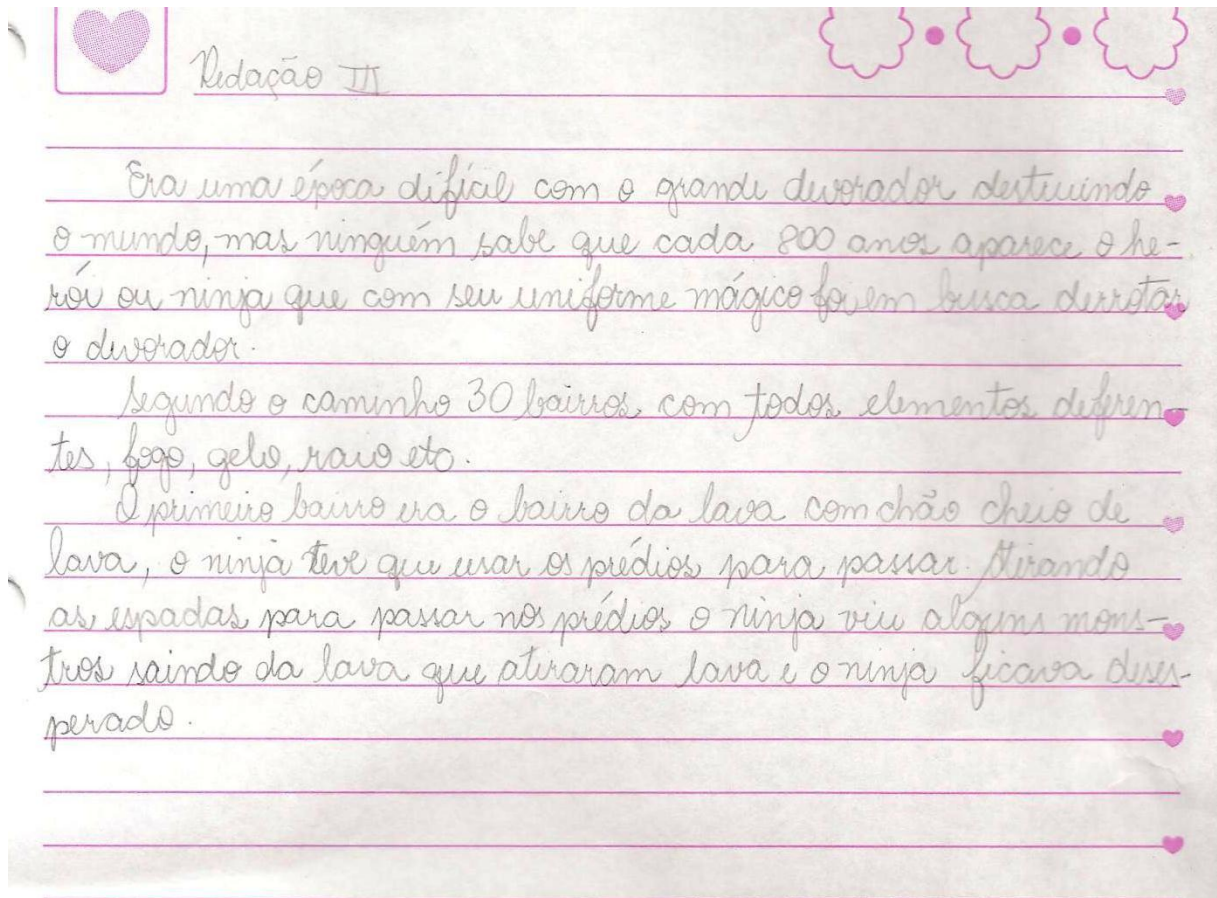 Redação III
Era uma época difícil com o grande devorador destruindo
o mundo, mas ninguém sabe que cada 800 anos aparece o he-
rói ou ninja que com seu uniforme mágico foi em busca derrotar
o devorador.
Segundo o caminho 30 bairros, com todos elementos diferen-
tes, fogo, gelo, raio etc.
O primeiro bairro era o bairro da lava com chão cheio de
lava, o ninja teve que usar os prédios para passar. Atirando
as espadas para passar nos prédios o ninja viu alguns mons-
tros saindo da lava que atiraram lava e o ninja ficava deses-
perado.